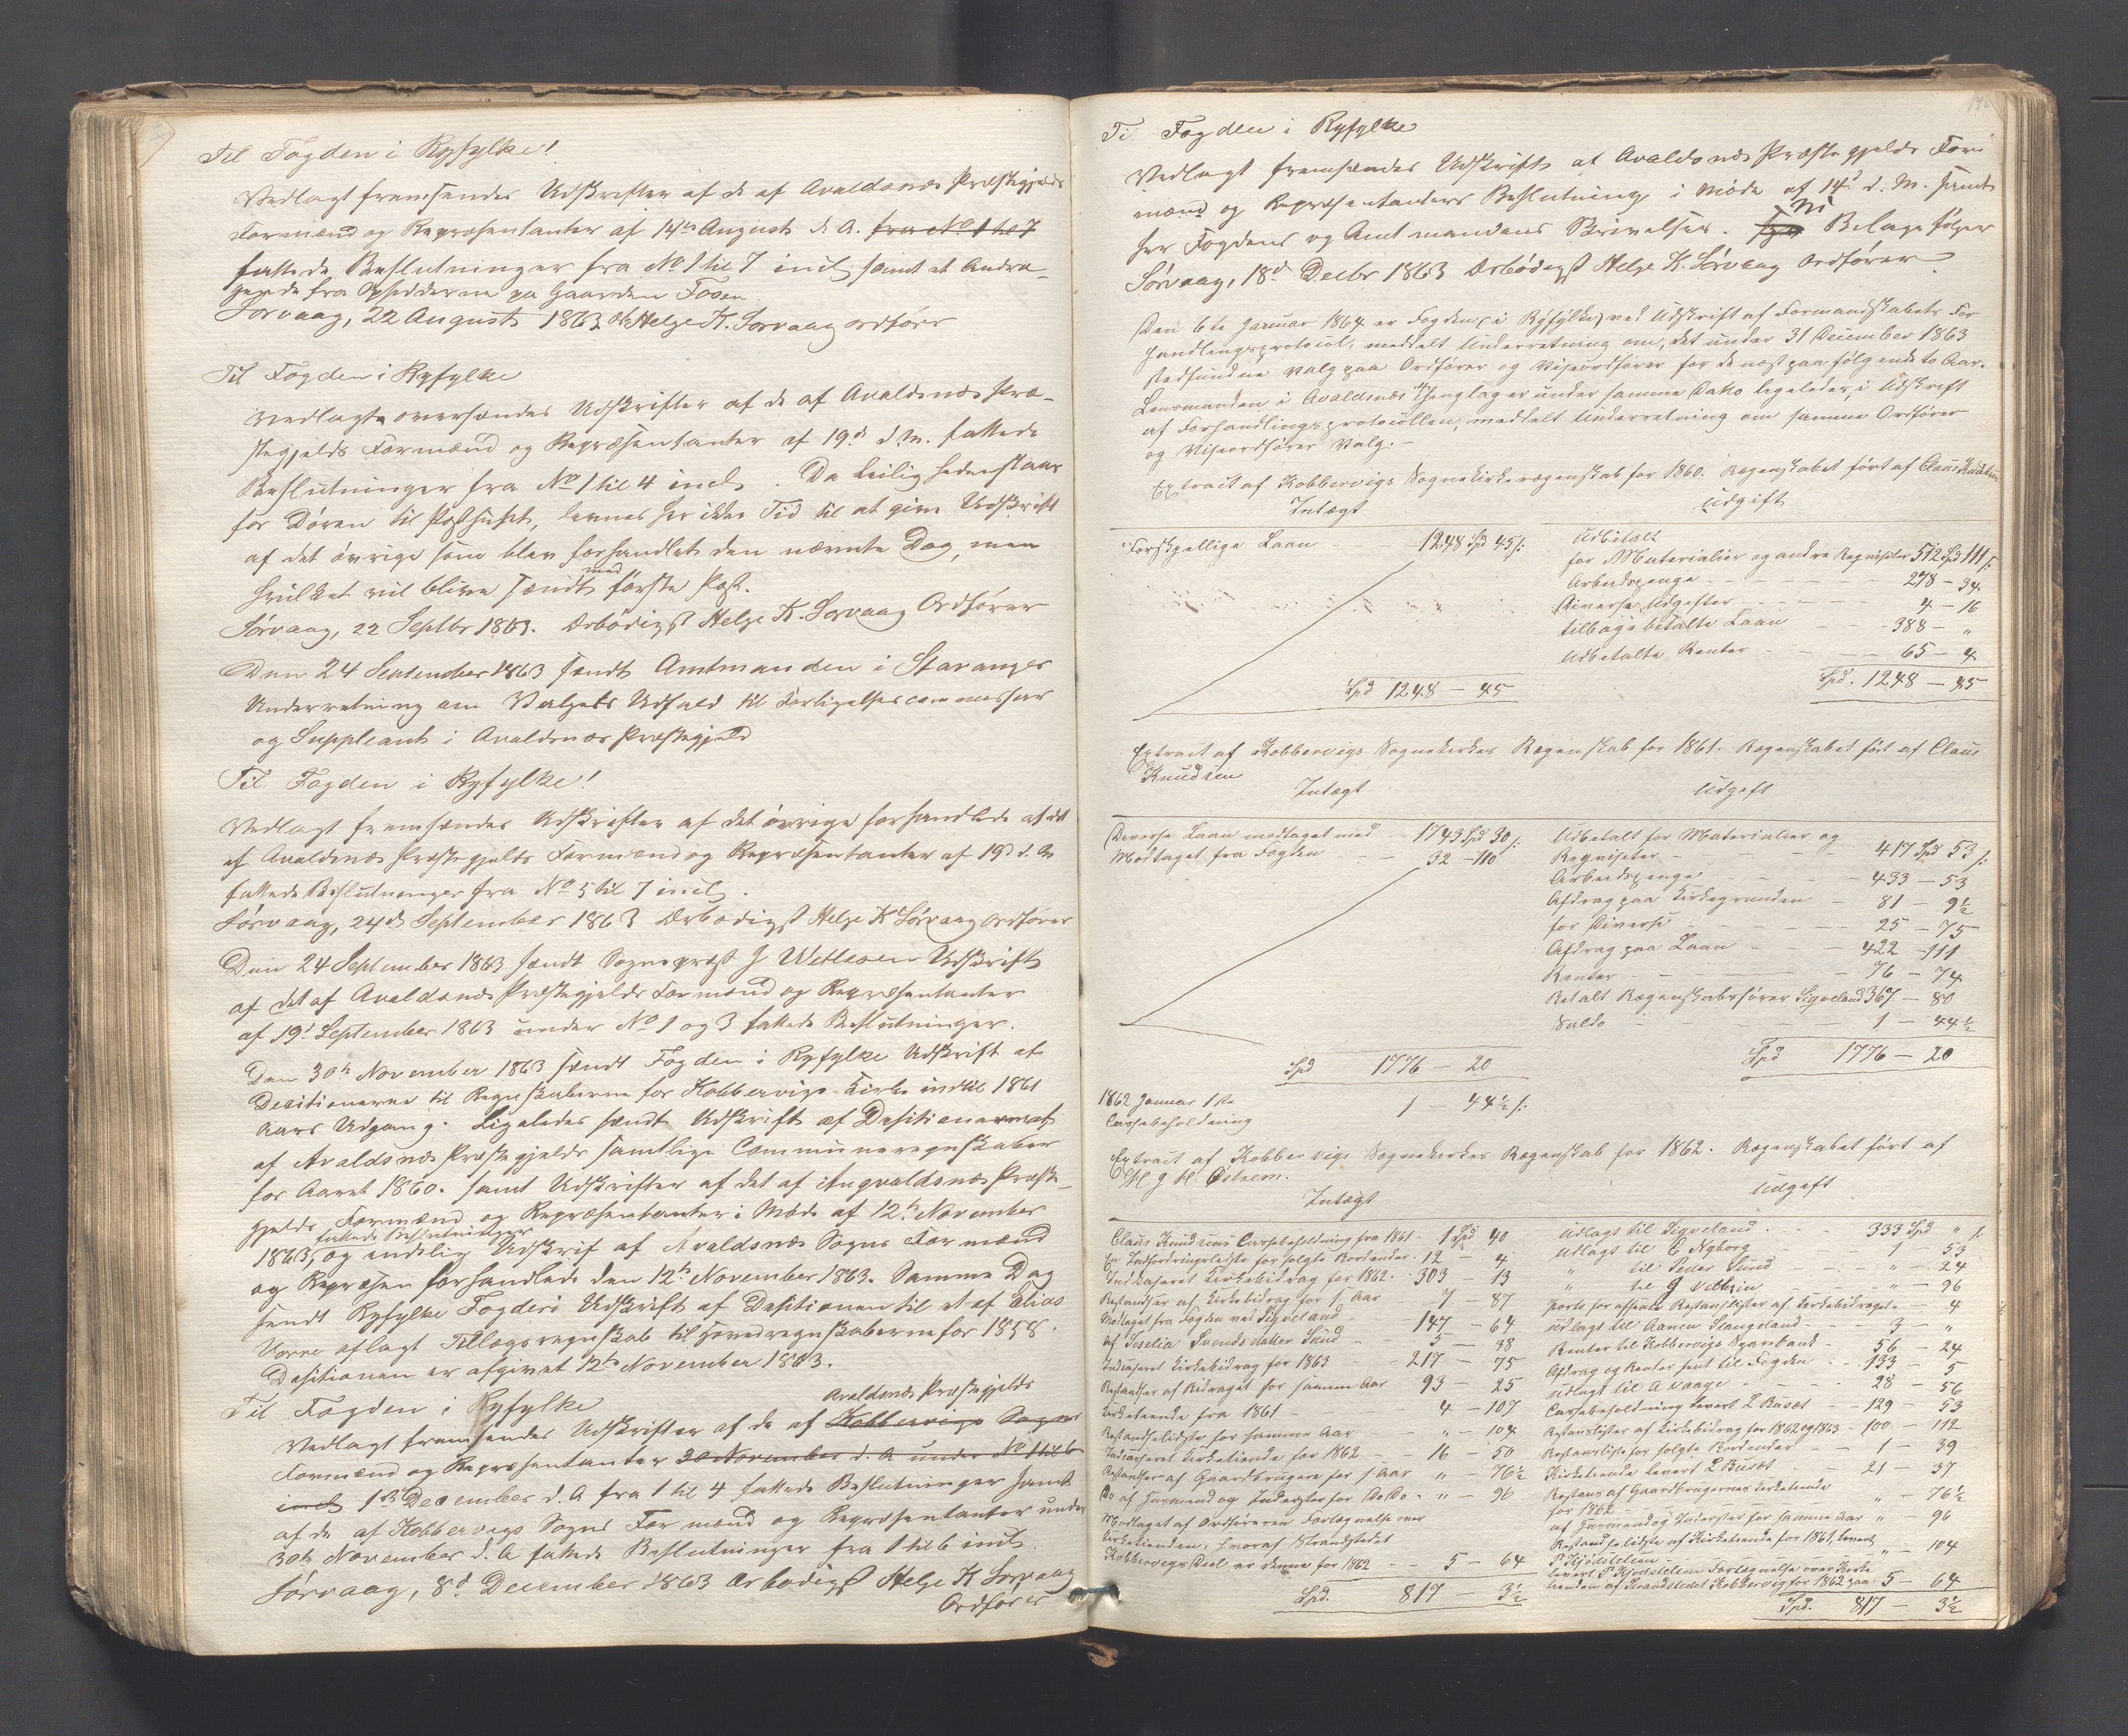 Til Fogden i Ryfylke!
Vedlagt fremsendes Udskrifter af de af Avaldsnæs Præstegjelds
Formænd og Repræsentanter af 14de August d. A. fra No 1 til 7
fattede Beslutninger fra No 1 til 7 incl samt et Andra-
gende fra Opsidderne paa Gaarden Fosen.
Sørvaag, 22 August 1863 Helge K. Sørvaag ordfører
Til Fogden i Ryfylke
Vedlagte oversændes Udskrifter af de af Avaldsnæs Præ-
stegjelds Formænd og Repræsentanter af 19d d. M. fattede
Beslutninger fra No 1 til 4 incl. Da Leilighedenstaar
for Døren til Posthuset, levnes her ikke Tid til at give Udskrift
af det øvrige som blev forhandlet den nævnte Dag, men
hvilket vil blive sendt med første Post.
Sørvaag, 22 Septbr 1863. Ærbødigst Helge K. Sørvaag Ordfører
Den 24 September 1863 sendt Amtmanden i Stavanger
Underretning om Valgets Udfald til Forligelsescommissær
og Suppleant i Avaldsnæs Præstegjeld
Til Fogden i Ryfylke!
Vedlagt fremsendes Udskrifter af det øvrige forhandlede af det
af Avaldsnæs Præstegjelds Formænd og Repræsentanter af 19d d. M
fattede Beslutninger fra No 5 til 7 incl.
Sørvaag, 24d September 1863 Ærbødigst Helge K Sørvaag ordfører
Den 24 September 1863 sendt Sognepræst J Wetlesen Udskrift
af det af Avaldsnæs Præstegjelds Formænd og Repræsentanter
af 19d September 1863 under No 1 og 3 fattede Beslutninger.
Den 30te November 1863 sendt Fogden i Ryfylke Udskrift af
Decitionerne til Regnskaberne for Kobbervigs Kirke indtil 1861
Aars Udgang. Ligeledes sendt Udskrift af Desitionerne
af Avaldsnæs Præstegjelds samtlige Communeregnskaber
for Aaret 1860. samt Udskrifter af det af Augvaldsnæs Præste-
gjelds Formænd og Repræsentanter i Møde af 12te November
fattede Beslutninger
1863, og endelig Udskrif af Avaldsnæs Sogns Formænd
og Repræsen forhandlede den 12te November 1863. Samme Dag
sendt Ryfylke Fogderi Udskrift af Desitionen til et af Elias
Vorre aflagt Tillægsregnskab til Hovedregnskaberne for 1858.
Desitionen er afgivet 12te November 1863.
Til Fogden i Ryfylke
Avaldsnæs Præstegjelds
Vedlagt fremsendes Udskrifter af de af Kobbervigs Sogns
Formænd og Repræsentanter 30 November d. A under No 1 til 6
incl 1ste December d. A fra 1 til 4 fattede Beslutninger samt
af de af Kobbervigs Sogns Formænd og Repræsentanter under
30te November d. A fattede Beslutninger fra 1 til 6 incl.
Sørvaag, 8d December 1863 Ærbødigst Helge K Sørvaag
Ordfører
Ti Fogden i Ryfylke
Vedlagt fremsendes Udskrift af Avaldsnæs Præstegjelds For
mænd og Repræsentanters Beslutning i Møde af 14d d. M. samt
her Fogdens og Amtmandens Skrivelser. Ni Bilage følger
Sørvaag, 18d Decbr 1863 Ærbødigst Helge K. Sørvaag Ordfører
Den 6te Januar 1864 er Fogden i Ryfylke, ved Udskrift af Formandskabets For
handlingsprotocol, meddelt Underretning om, det under 31 December 1863
stedfundne Valg paa Ordfører og Viseordfører for de næst paafølgende to Aar.
Lensmanden i Avaldsnæs Thinglag er under samme Dato ligeledes, i Udskrift
af Forhandlingsprotocollen, meddelt Underretning om samme Ordfører
og Viseordfører Valg. -
Extract af Kobbervigs Sognekirkeregenskab for 1860. Regenskabet ført af Claus Knudsen
Intægt Udgift
Forskjellige Laan 1248 Spd 45 s.
Udbetalt
for Materialier og andre Reqvisiter 512 Spd 111 s.
Arbeidspenge 278 - 34
Diverse Udgifter 4 - 16
tilbagebetalte Laan 388 - "
Udbetalte Renter 65 - 4
Spd 1248 - 45 Spd. 1248 - 45
Extract af Kobbervigs Sognekirkes Regenskab for 1861. Regenskabet ført af Claus
Knudsen
Intægt Udgift
Diverse Laan modtaget med 1743 Spd 30 s.
Modtaget fra Fogden 32 - 110
Udbetalt for Materialier og
Reqvisiter 417 Spd 53 s.
Arbeidspenge 433 - 53
Afdrag paa Kirkegrunden 81 - 9½
for Diverse 25 - 75
Afdrag paa Laan 422 - 111
Renter 76 - 74
Betalt Regenskabsfører Sigveland 367 - 80
Saldo 1 - 44½
Spd 1776 - 20 Spd 1776 - 20
1862 Januar 1ste 1 - 44½ s.
Cassebeholdning
Extract af Kobbervigs Sognekirkes Regenskab for 1862. Regenskabet ført af
Østrem.
Intægt Udgift
Claus Knudsens Cassebeholdning fra 1861 - 1 Spd 40
En Indfordringsliste for solgte Bordender 12 - 4
Indkasseret Kirkebidrag for 1862. 303 - 13
Restantser af Kirkebidrag for s. Aar 7 - 87
Modtaget fra Fogden ved Sigveland 147 - 64
af Siselia Svendsdatter Sund 5 - 38
Indcasseret Kirkebidrag for 1863 217 - 75
Restantser af Bidraget for samme Aar 93 - 25
Kirketiende fra 1861 4 - 107
Restanseliste for samme Aar " - 104
Indcasseret Kirketiende for 1862 16 - 50
Restantser af Gaardbrugere for s. Aar " - 76½
Do af Husmend og Inderster for Do Do. " - 96
Modtaget af Ordføreren Forløgnelse over
Kirketienden, hvoraf Strandstedet
Kobbervigs Deel er denne for 1862 5 - 64
Spd. 817 - 3½
Udlagt til Sigveland 333 Spd " s.
Udlagt til E Nyborg 1 - 53
" til Peder Sund " - 24
" til G Velksin " - 96
Porto for Restanslister af Kirkebidraget " - 4
Udlagt til Aanen Stangeland 3 - "
Renter til Kobbervigs Sparebank 56 - 24
Afdrag og Renter sent til Fogden 133 - 5
Udlagt til A Vaage 28 - 56
Cassebeholdning levert L Busæt 129 - 53
Restanslister af Kirkebidrag for 1862 og 1863 - 100 - 112
Restansliste for solgte Bordender 1 - 39
Kirketiende levert L Busæt 21 - 37
Restans af Gaardbrugernes Kirketiende
for 1862 " - 76½
af Husmend og Inderster for samme Aar " - 96
Restanseliste af Kirketiende for 1861, levert
P Kjødstelsen " - 104
levert P Kjødstelsen Forløgnelse over Kirke
tienden af Strandstedet Kobbervig for 1862 paa 5 - 64
Spd. 817 - 3½